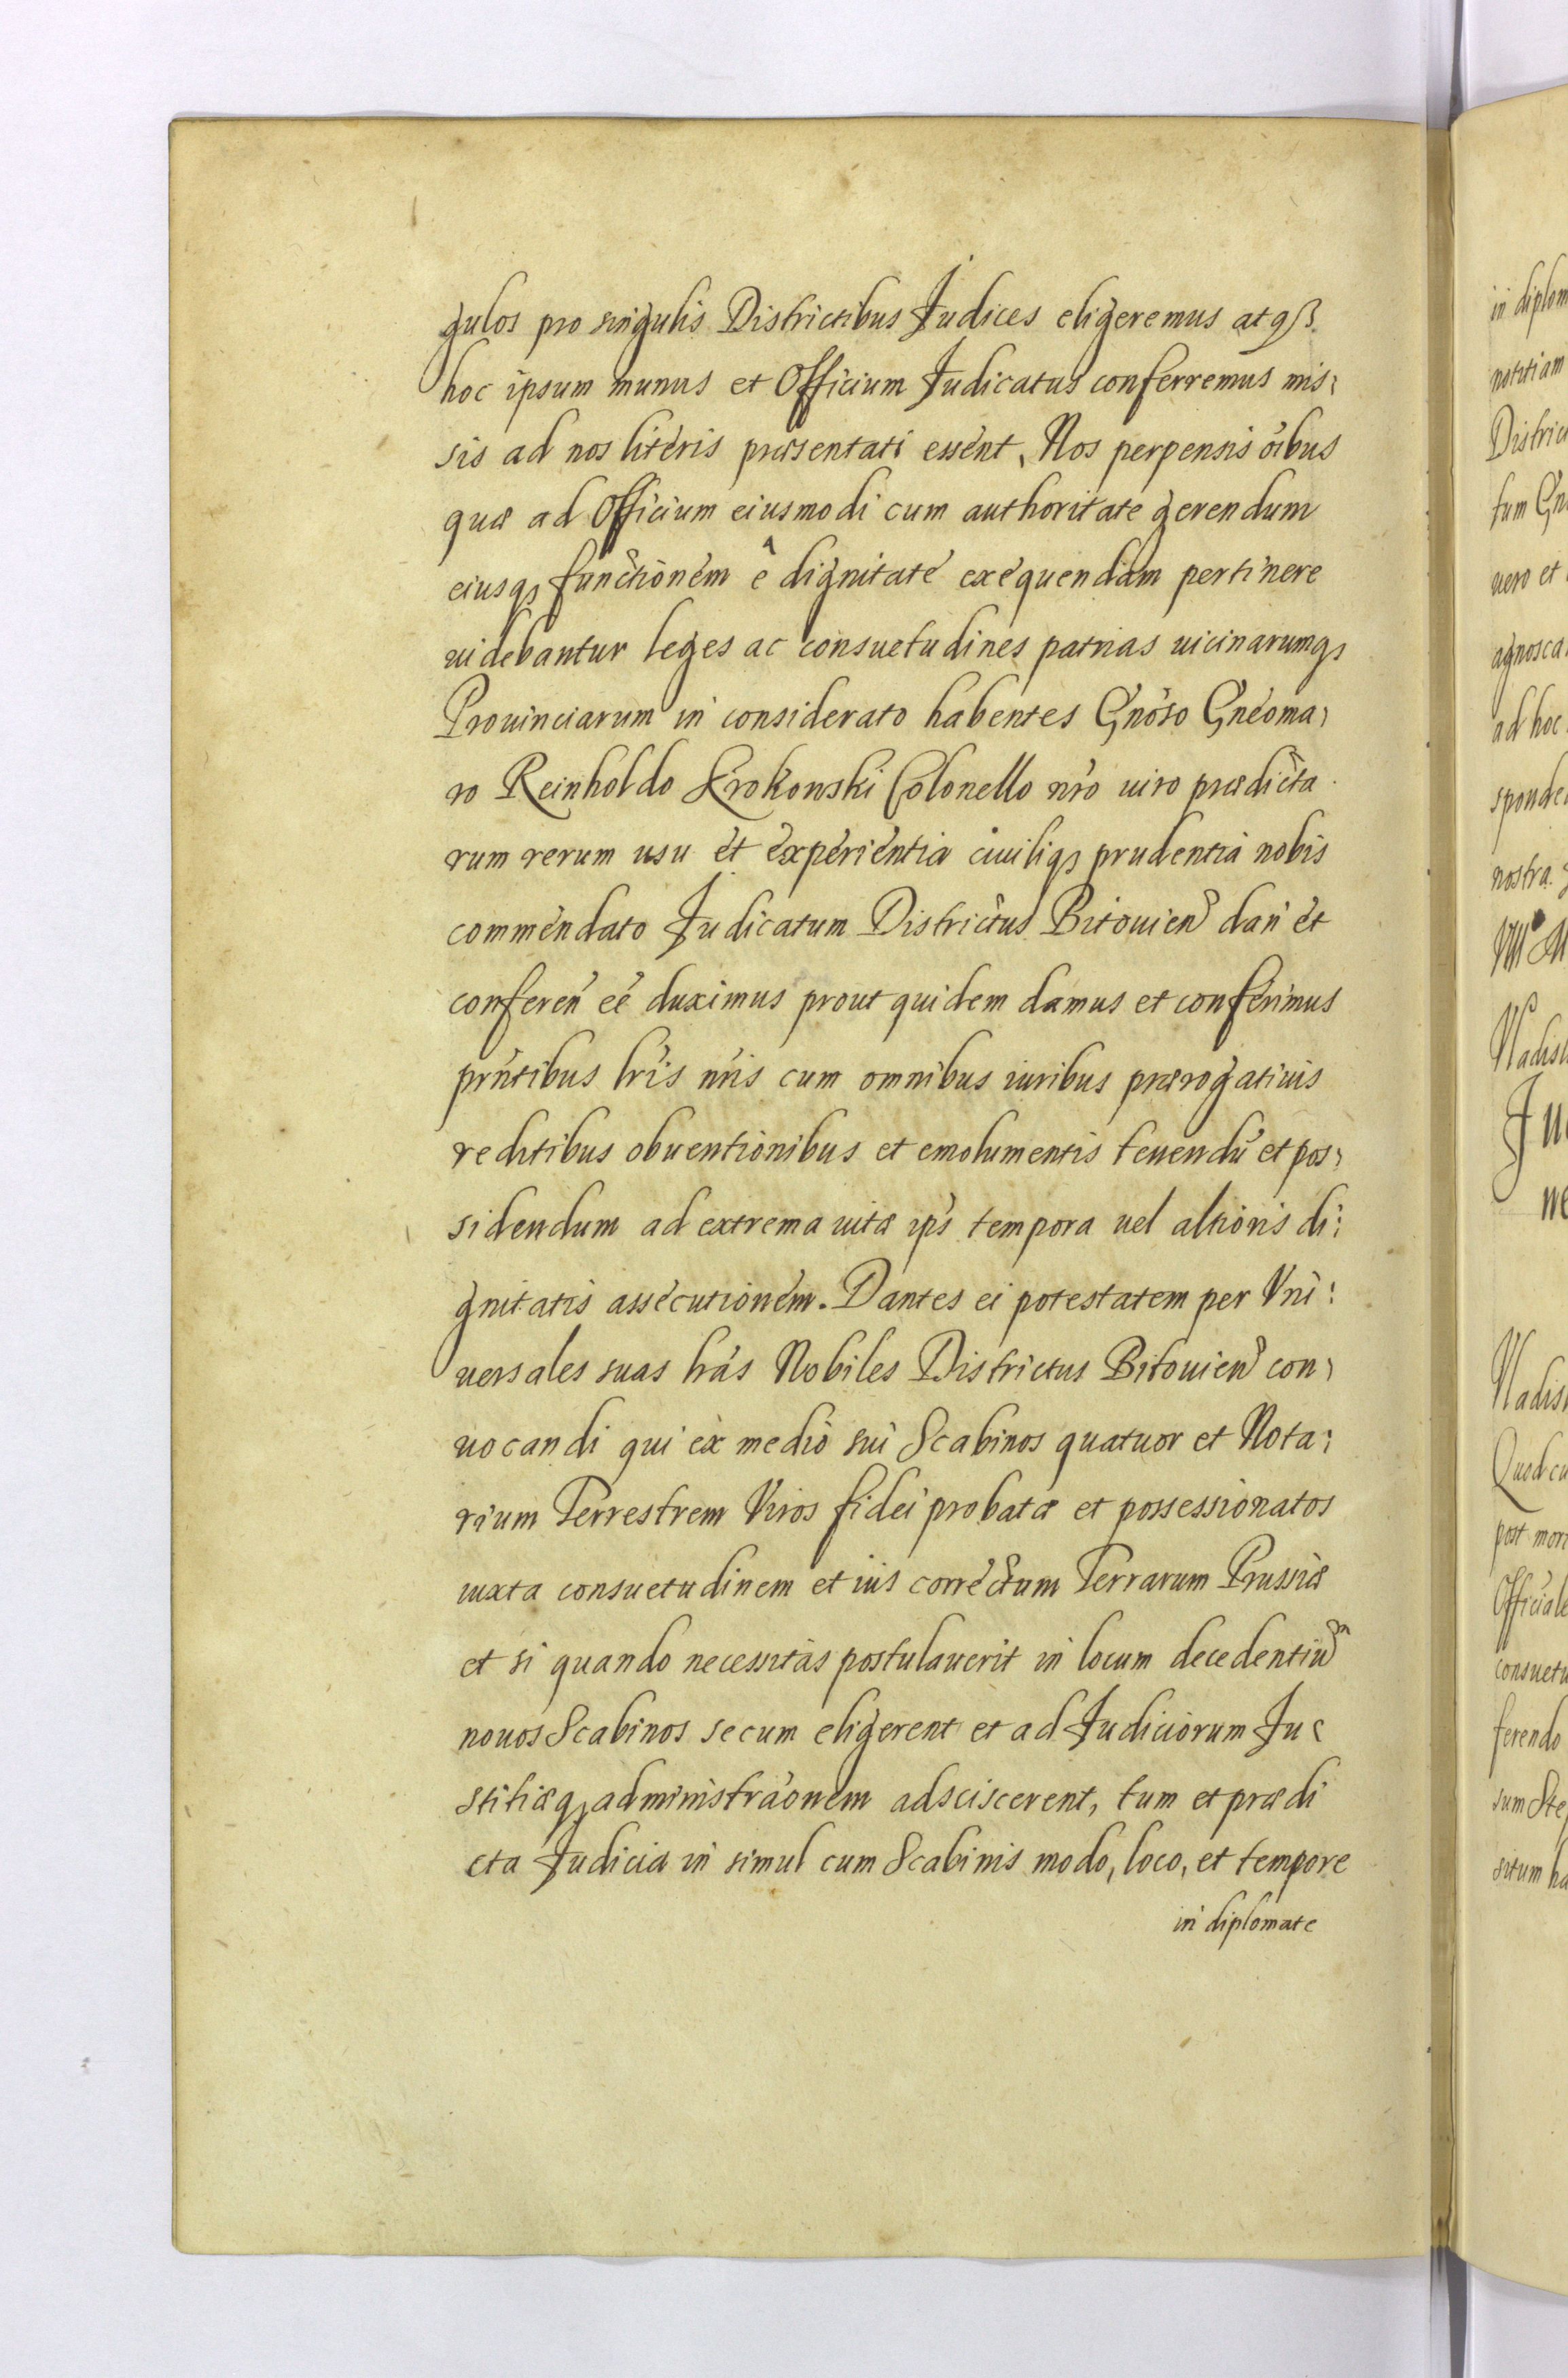 gulos pro singulis Districtibus Judices eligeremus atq3
hoc ipsum munus et Officium Judicatus conferremus mis:
sis ad nos literis præsentati essent, Nos perpensis oíbus
quæ ad Officium eiusmodi cum authoritate gerendum
eiusq3 functionem ê dignitate exequendam pertinere
uidebantur leges ac consuetudines patrias uicinarumq3
Prouinciarum in considerato habentes Gnóso Gneoma:
ro Reinholdo Krokowski Colonello nró uiro prædicta
rum rerum usu et experientia ciuiliq3 prudentia nobis
commendato Judicatum Districtus Bitouien dań et
confereń eé duximus prout quidem damus et conferimus
prńtibus lrís nrís cum omnibus iuribus prærogatiuis
reditibus obuentionibus et emolumentis tenendú et pos:
sidendum ad extrema uitæ ips tempora uel altioris di:
gnitatis assecutionem. Dantes ei potestatem per Vni:
uersales suas lrás Nobiles Districtus Bitouien con:
uocandi qui ex medio sui Scabinos quatuor et Nota:
rium Terrestrem Viros fidei probatæ et possessionatos
iuxta consuetudinem et ius correctum Terrarum Prussiæ
et si quando necessitas postulauerit in locum decedentiũm
nouos Scabinos secum eligerent et ad Judiciorum Ju:
stitiæq3 administraónem adsciscerent, tum et prædi
cta Judicia in simul cum Scabinis modo, loco, et tempore
in diplomate
in diplom
notitiam
Distric
tum Gn
uero et
agnosca
ad hoc
sponde
nostra.
Vladisl
Ju
ne
Vladis
Quod cu
post mor
Officiale
consuetu
ferendo
sum Ste
situm ha